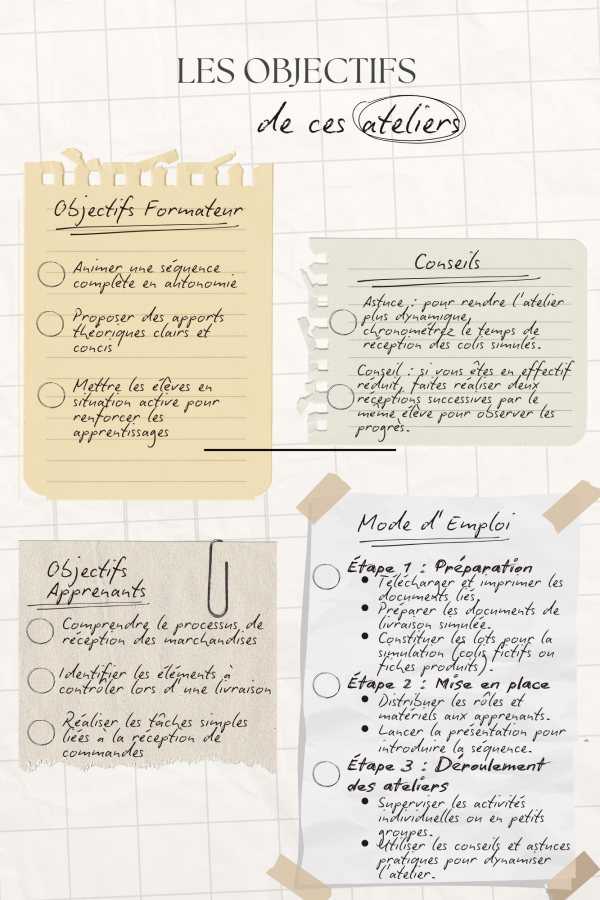 LES OBJECTIFS
de ces ateliers
Objectifs Formateur
Animer une séquence
complète en autonomie
Proposer des apports
théoriques clairs et
concis
Mettre les élèves en
situation active pour
renforcer les
apprentissages
Conseils
Astuce : pour rendre l'atelier
plus dynamique,
chronométrez le temps de
réception des colis simulés.
Conseil : si vous êtes en effectif
réduit, faites réaliser deux
réceptions successives par le
même élève pour observer les
progrès.
Objectifs
Apprenants
Comprendre le processus de
réception des marchandises
Identifier les éléments à
contrôler lors d'une livraison
Réaliser les tâches simples
liées à la réception de
commandes
Mode d'Emploi
Étape 1 : Préparation
• Télécharger et imprimer les
documents liés.
• Préparer les documents de
livraison simulée.
• Constituer les lots pour la
simulation (colis fictifs ou
fiches produits).
Étape 2 : Mise en place
• Distribuer les rôles et
matériels aux apprenants.
• Lancer la présentation pour
introduire la séquence.
Étape 3 : Déroulement
des ateliers
• Superviser les activités
individuelles ou en petits
groupes.
• Utiliser les conseils et astuces
pratiques pour dynamiser
l'atelier.